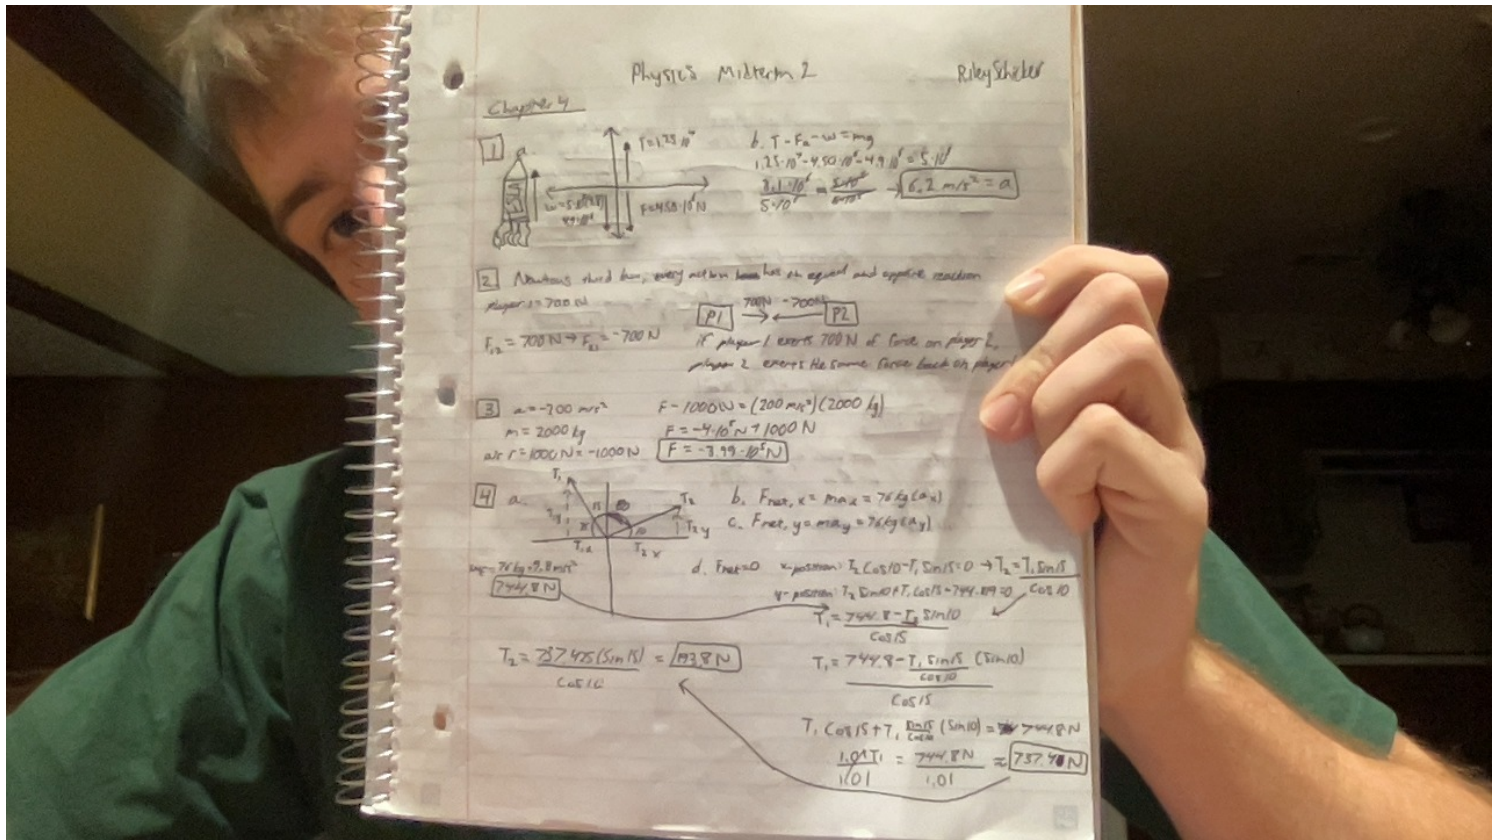 Physics Midterm 2
Riley Schicker
Chapter 4
1 a.
T=1.25·10⁷
W=5·10⁵(9.8)
4.9·10⁶
F=4.50·10⁶N
b. T-Fa-w=mg
1.25·10⁷-4.50·10⁶-4.9·10⁶=5·10⁵
3.1·10⁶/5·10⁵ = 5·10⁵/5·10⁵ → 6.2 m/s² = a
2 Newtons third law, every action has an equal and opposite reaction
player 1=700N
700N -700N
P1 P2
F₁₂=700N→F₂₁=-700N
if player 1 exerts 700N of force on player 2,
player 2 exerts the same force back on player 1
3 a=-200 m/s²
m=2000kg
air r=1000N=-1000N
F-1000N=(200 m/s²)(2000 kg)
F=-4·10⁵N+1000N
F=-3.99·10⁵N
4 a.
T₁ T₂
15 80
T₁y 75 10 T₂y
T₁x T₂x
b. Fnet,x=max=76kg(ax)
c. Fnet,y=may=76kg(ay)
=76kg·9.8m/s²
744.8N
d. Fnet=0 x-position: T₂Cos10-T₁Sin15=0 → T₂=T₁Sin15/Cos10
y-position: T₂Sin10+T₁Cos15-744.8=0
T₁=744.8-T₂Sin10/Cos15
T₂=737.425(Sin15)/Cos10 = 193.8N
T₁=744.8-T₁Sin15/Cos10 (Sin10)/Cos15
T₁Cos15+T₁ Sin15/Cos10 (Sin10)=744.8N
1.01T₁/1.01 = 744.8N/1.01 ≈ 737.4N